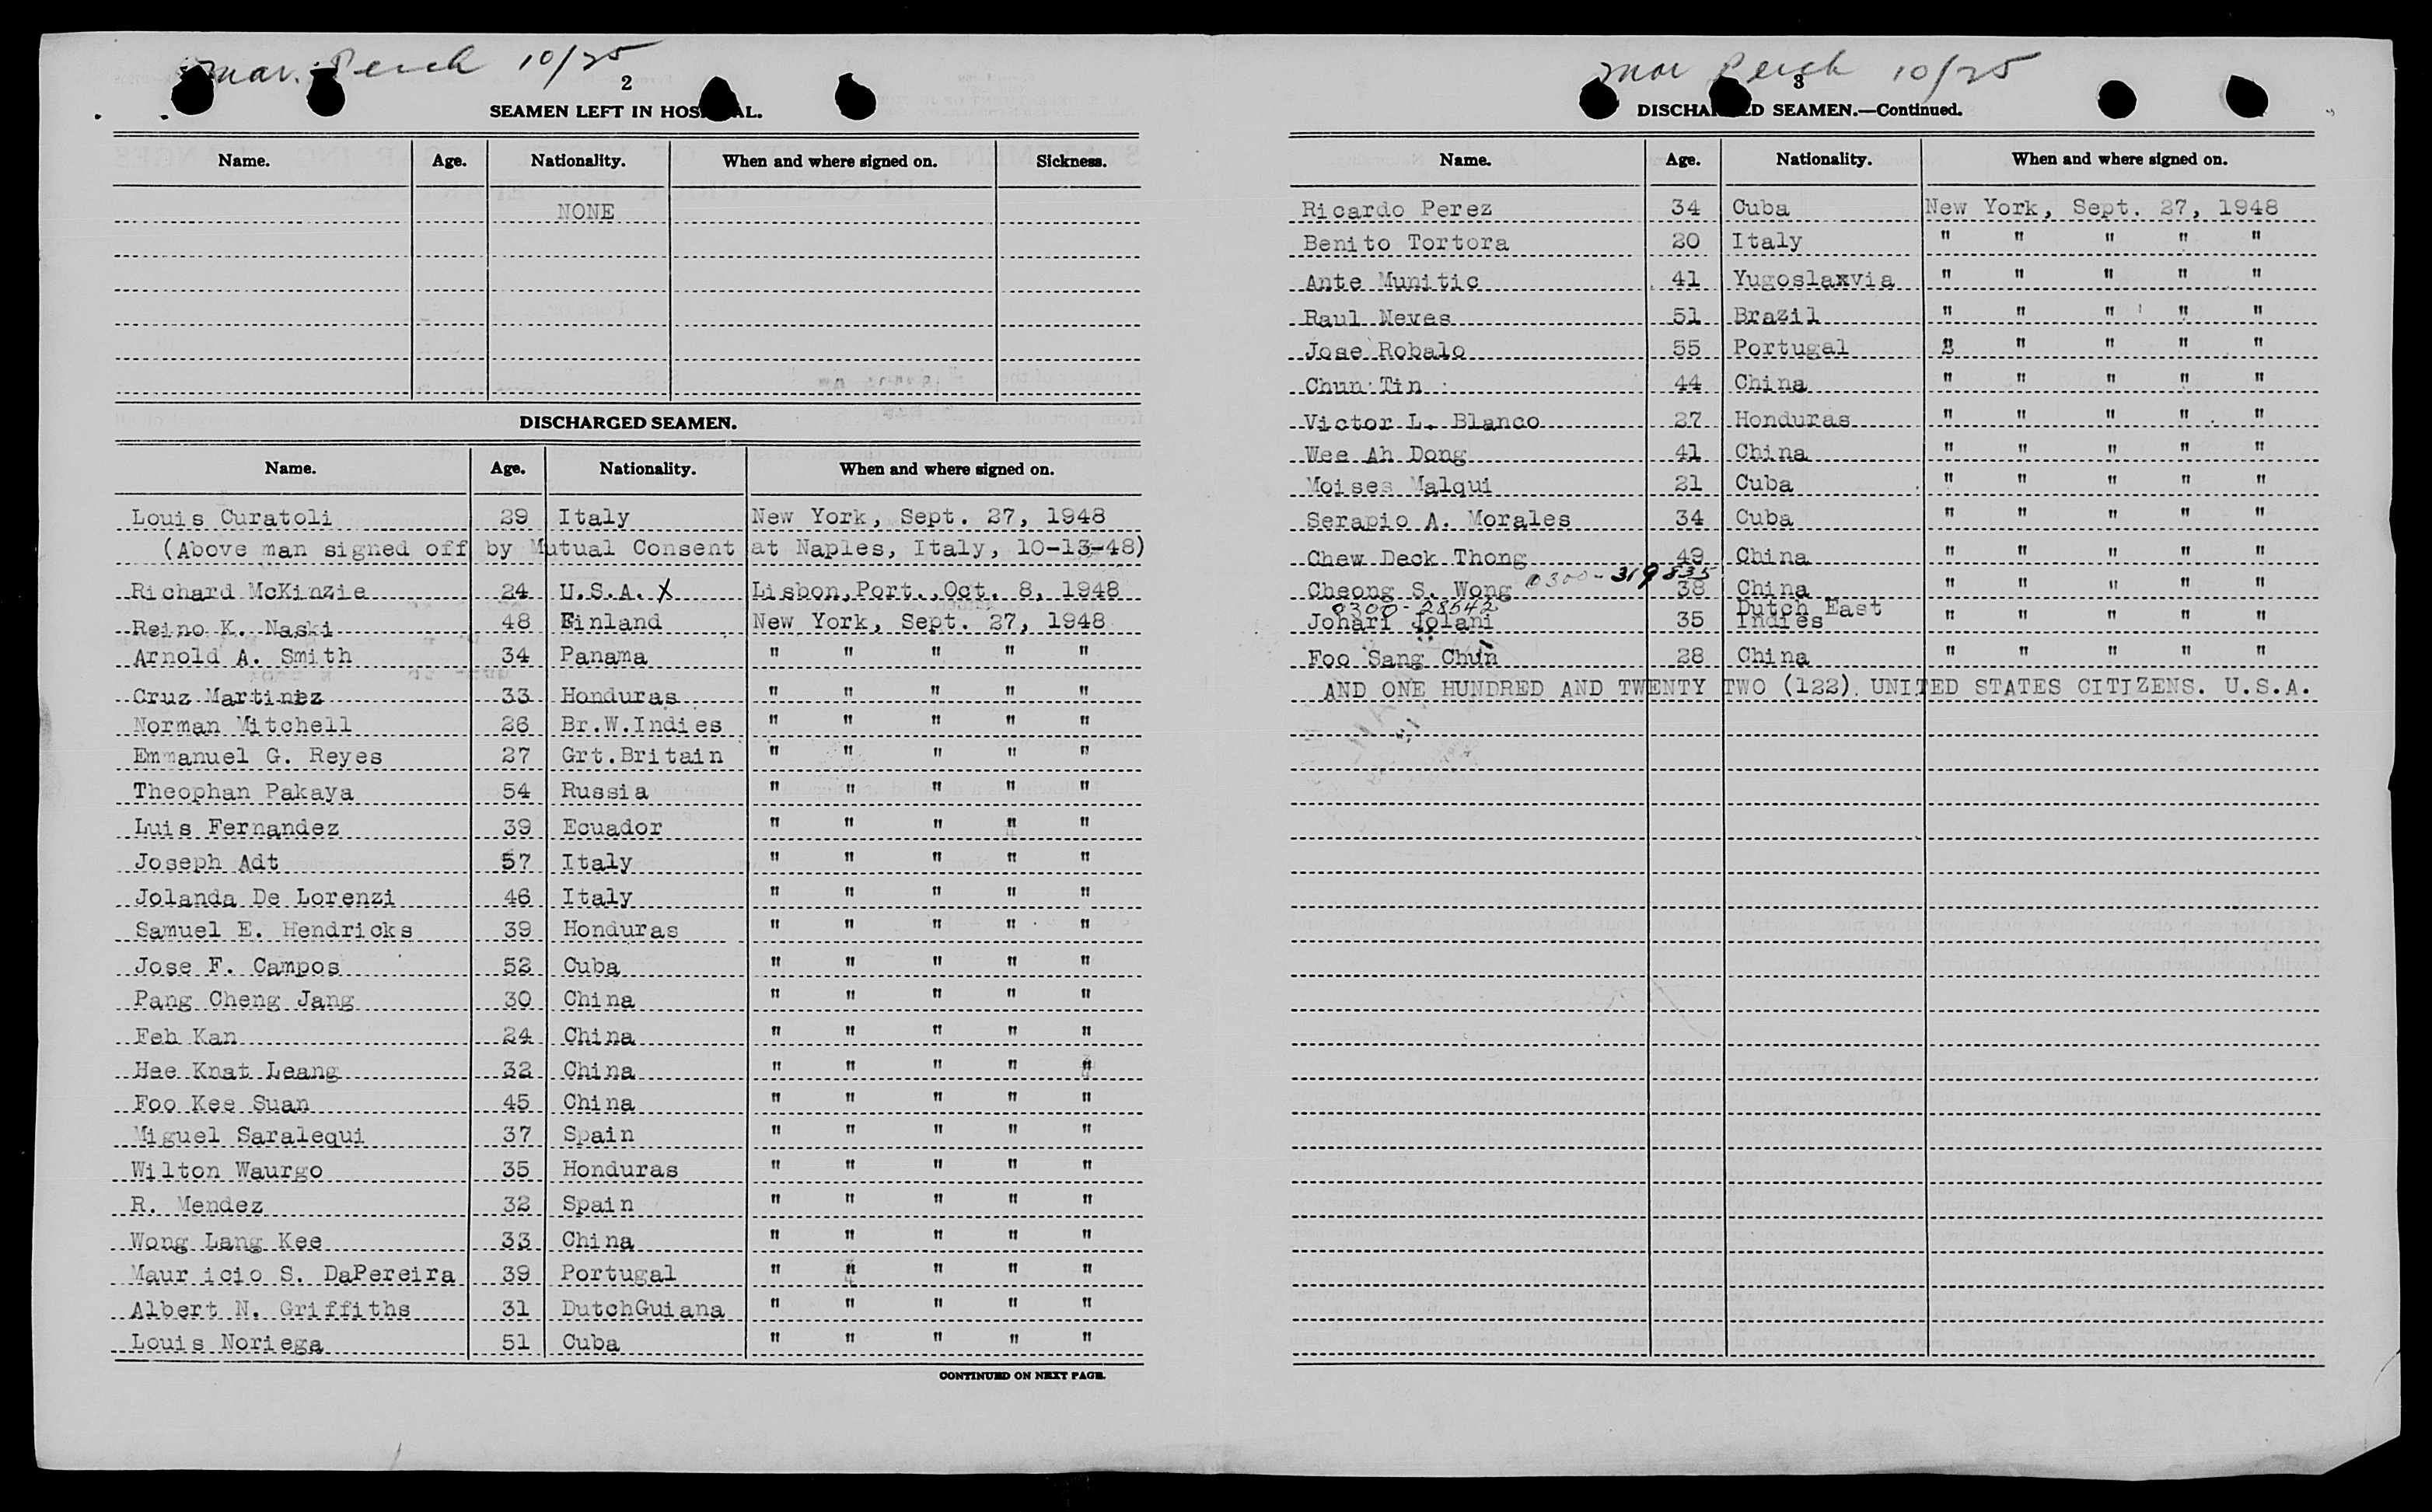 Mar. Perch 10/25
2
SEAMEN LEFT IN HOSPITAL.
Name. Age. Nationality. When and where signed on. Sickness.
NONE
DISCHARGED SEAMEN.
Name. Age. Nationality. When and where signed on.
Louis Curatoli 29 Italy New York, Sept. 27, 1948
(Above man signed off by Mutual Consent at Naples, Italy, 10-13-48)
Richard McKinzie 24 U.S.A. X Lisbon,Port.,Oct. 8, 1948
Reino K. Naski 48 Finland New York, Sept. 27, 1948
Arnold A. Smith 34 Panama " " " " "
Cruz Martinez 33 Honduras " " " " "
Norman Mitchell 26 Br.W.Indies " " " " "
Emmanuel G. Reyes 27 Grt.Britain " " " " "
Theophan Pakaya 54 Russia " " " " "
Luis Fernandez 39 Ecuador " " " " "
Joseph Adt 57 Italy " " " " "
Jolanda De Lorenzi 46 Italy " " " " "
Samuel E. Hendricks 39 Honduras " " " " "
Jose F. Campos 52 Cuba " " " " "
Pang Cheng Jang 30 China " " " " "
Feh Kan 24 China " " " " "
Hee Knat Leang 32 China " " " " "
Foo Kee Suan 45 China " " " " "
Miguel Saralequi 37 Spain " " " " "
Wilton Waurgo 35 Honduras " " " " "
R. Mendez 32 Spain " " " " "
Wong Lang Kee 33 China " " " " "
Maur icio S. DaPereira 39 Portugal " " " " "
Albert N. Griffiths 31 DutchGuiana " " " " "
Louis Noriega 51 Cuba " " " " "
CONTINUED ON NEXT PAGE.
Mar Perch 10/25
3
DISCHARGED SEAMEN.—Continued.
Name. Age. Nationality. When and where signed on.
Ricardo Perez 34 Cuba New York, Sept. 27, 1948
Benito Tortora 20 Italy " " " " "
Ante Munitic 41 Yugoslaxvia " " " " "
Raul Neves 51 Brazil " " " " "
Jose Robalo 55 Portugal " " " " "
Chun Tin 44 China " " " " "
Victor L. Blanco 27 Honduras " " " " "
Wee Ah Dong 41 China " " " " "
Moises Malqui 21 Cuba " " " " "
Serapio A. Morales 34 Cuba " " " " "
Chew Deck Thong 49 China " " " " "
Cheong S. Wong 0300-319835 38 China " " " " "
0300-28542
Johari Jolani 35 Dutch East Indies " " " " "
Foo Sang Chun 28 China " " " " "
AND ONE HUNDRED AND TWENTY TWO (122) UNITED STATES CITIZENS. U.S.A.